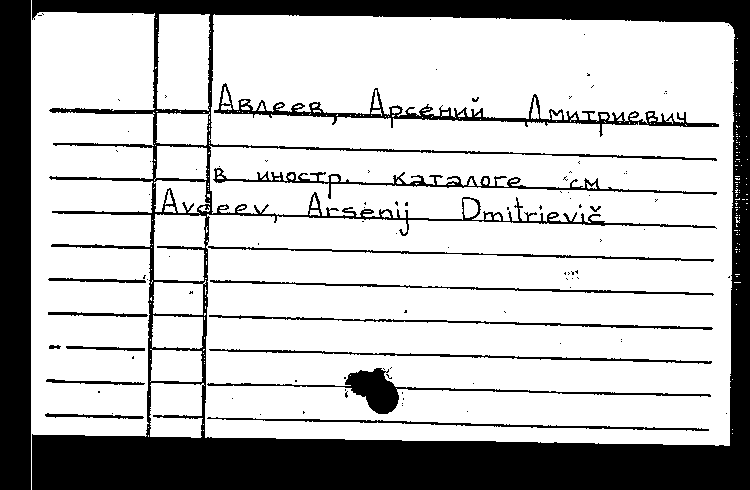 Авдеев, Арсений Дмитриевич
в иностр. каталоге см.
Avdeev, Arsenij Dmitrievič